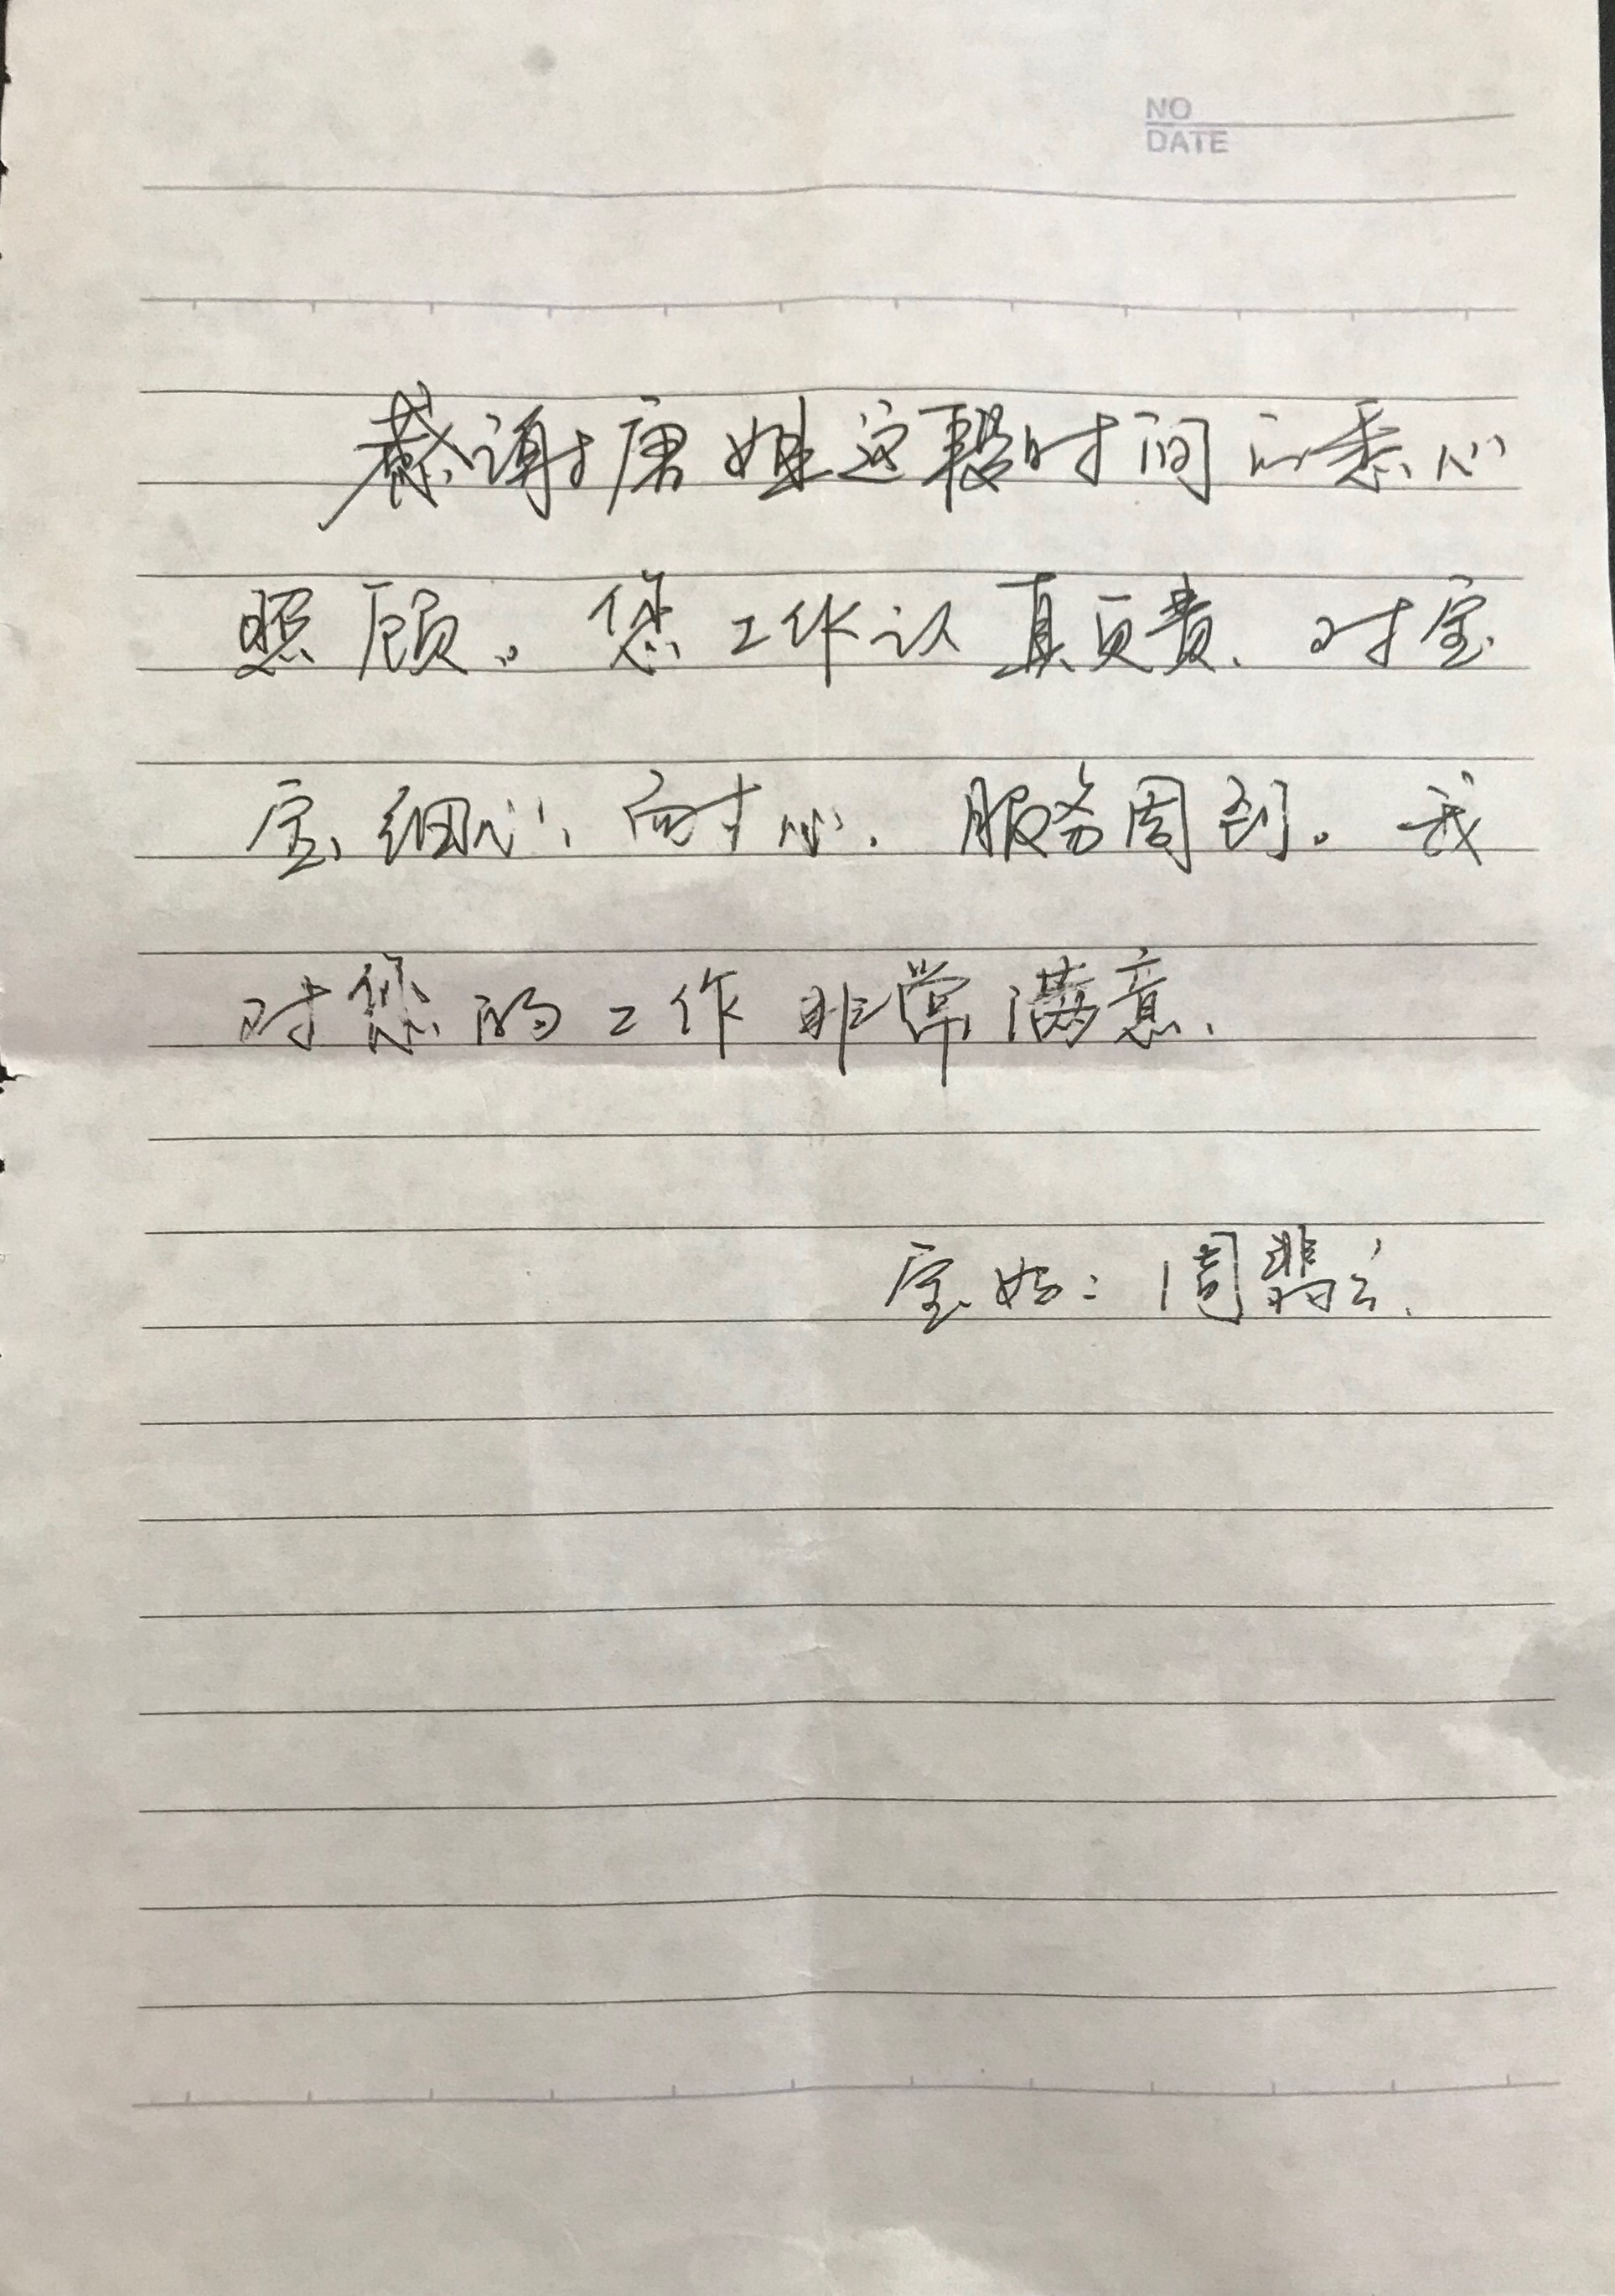 NO
DATE
感谢唐姐这段时间的悉心
照顾。您工作认真负责、对宝
宝细心、耐心、服务周到。我
对您的工作非常满意、
宝妈：周翡